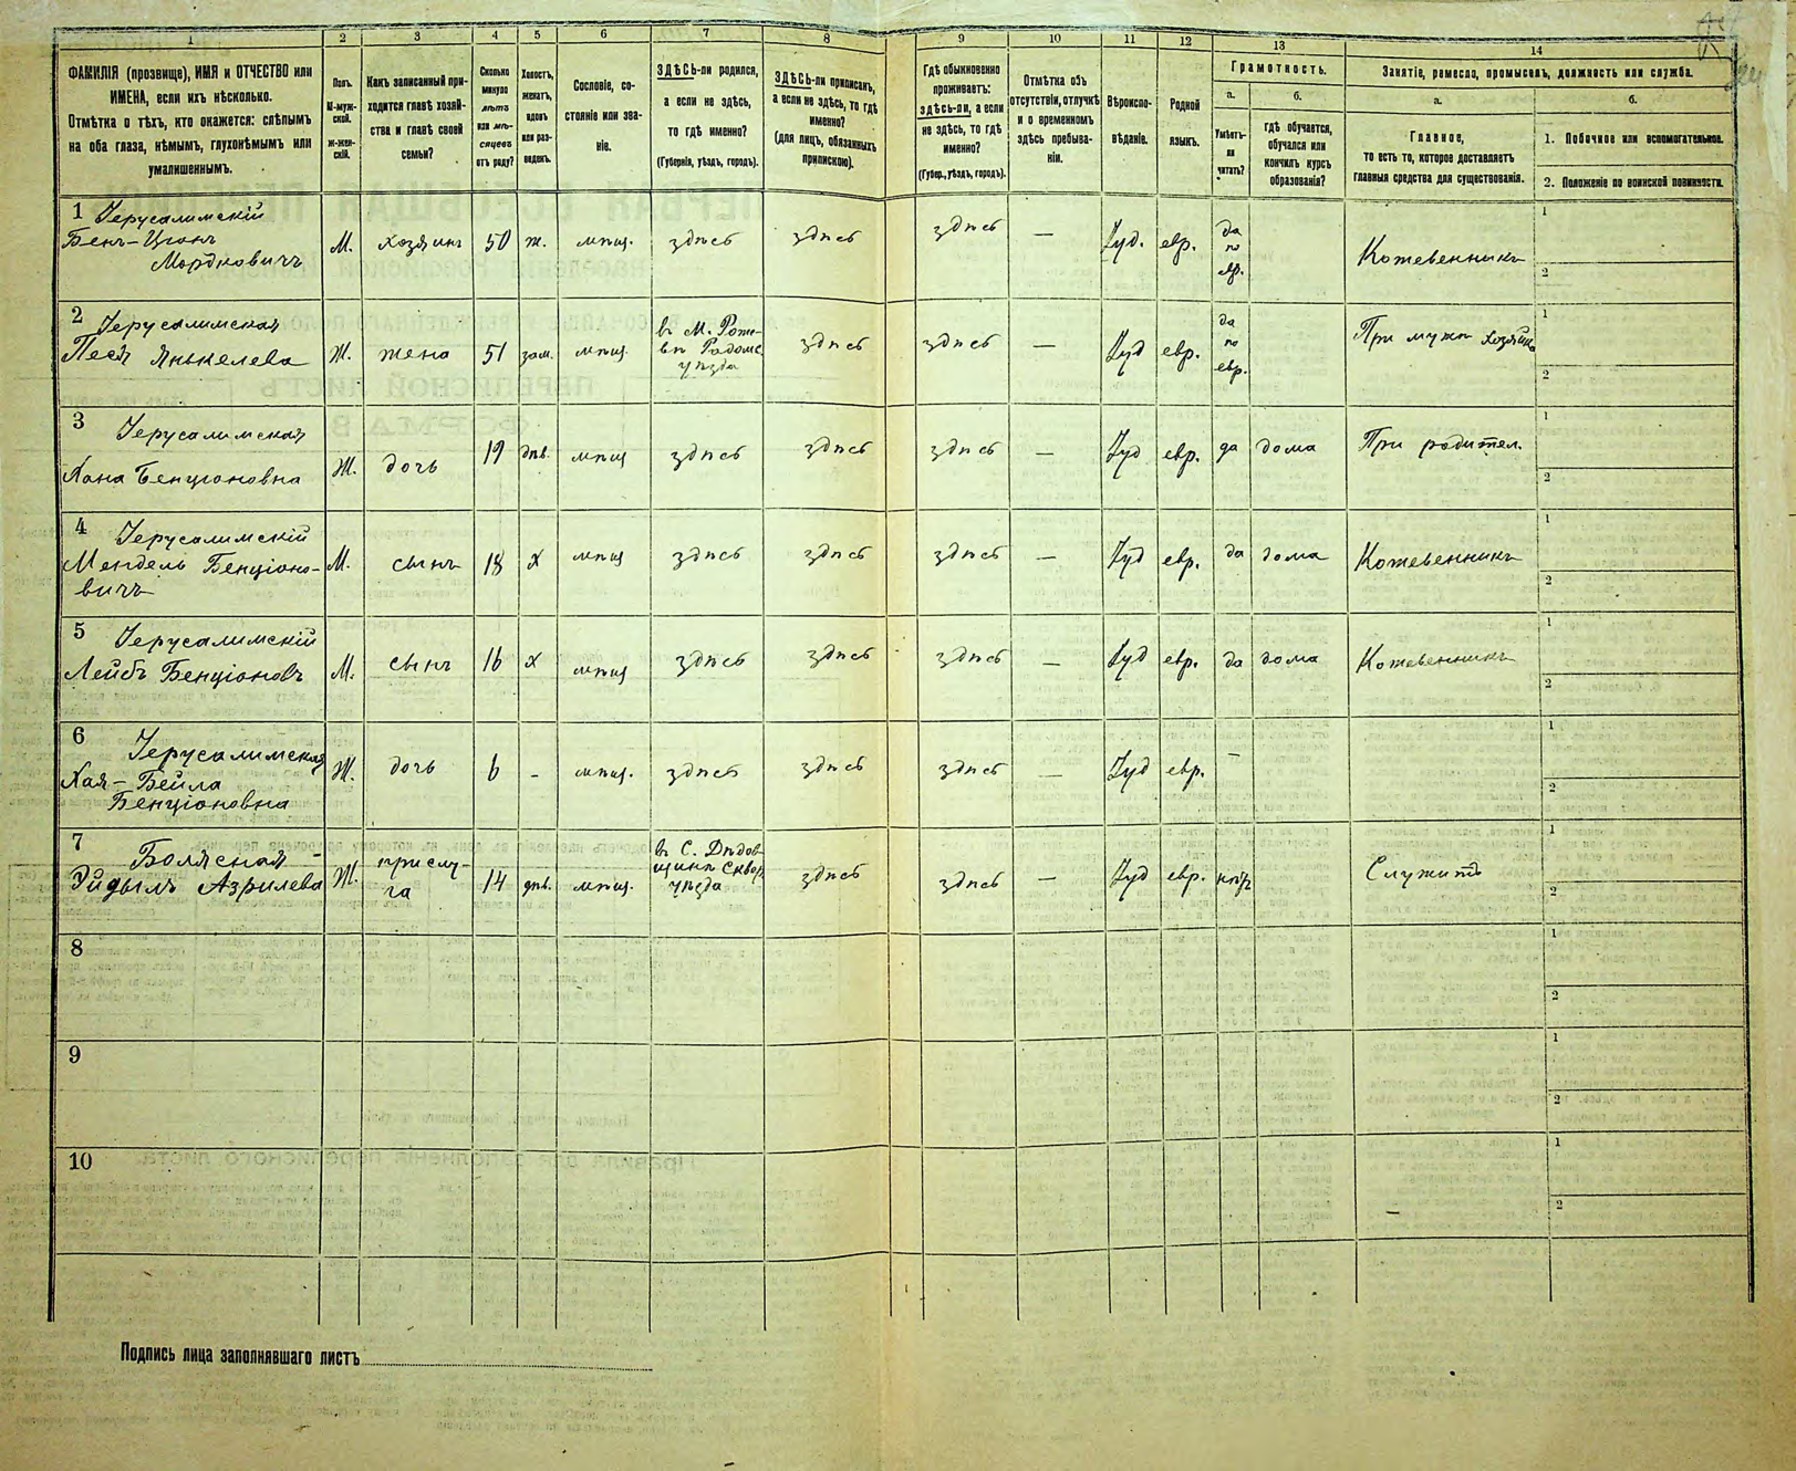 1 2 3 4 5 6 7 8 9 10 11 12 13 14
ФАМИЛІЯ (прозвище), ИМЯ и ОТЧЕСТВО или
ИМЕНА, если ихъ нѣсколько.
Отмѣтка о тѣхъ, кто окажется: слѣпымъ
на оба глаза, нѣмымъ, глухонѣмымъ или
умалишеннымъ.
Полъ.
М-муж-
ской.
ж-жен-
скій.
Какъ записанный при-
ходится главѣ хозяй-
ства и главѣ своей
семьи?
Сколько
минуло
лѣтъ
или мѣ-
сяцевъ
отъ роду?
Холостъ,
женатъ,
вдовъ
или раз-
веденъ.
Сословіе, со-
стояніе или зва-
ніе.
ЗДѢСЬ-ли родился,
а если не здѣсь,
то гдѣ именно?
(Губернія, уѣздъ, городъ).
ЗДѢСЬ-ли приписанъ,
а если не здѣсь, то гдѣ
именно?
(для лицъ, обязанныхъ
припискою).
Гдѣ обыкновенно
проживаетъ:
здѣсь-ли, а если
не здѣсь, то гдѣ
именно?
(Губер., уѣздъ, городъ).
Отмѣтка объ
отсутствіи, отлучкѣ
и о временномъ
здѣсь пребыва-
ніи.
Вѣроиспо-
вѣданіе.
Родной
языкъ.
Грамотность.
а.
Умѣетъ-
ли
читать?
б.
гдѣ обучается,
обучался или
кончилъ курсъ
образованія?
Занятіе, ремесло, промыселъ, должность или служба.
а.
Главное,
то есть то, которое доставляетъ
главныя средства для существованія.
б.
1. Побочное или вспомогательное.
2. Положеніе по воинской повинности.
1 Іерусалимскій
Бенъ-Ціонъ
Мордковичъ
М. хозяинъ 50 ж. мѣщ. здѣсь здѣсь здѣсь — Іуд. евр.
да
по
евр.
Кожевенникъ
1
2
2 Іерусалимская
Песя Янкелева
Ж. жена 51 зам. мѣщ.
въ М.
уѣзда
здѣсь здѣсь — Іуд евр.
да
по
евр.
При мужѣ хозяйка
1
2
3 Іерусалимская
Хана Бенціоновна
Ж. дочь 19 дѣв. мѣщ здѣсь здѣсь здѣсь — Іуд евр. да дома При родител.
1
2
4 Іерусалимскій
Мендель Бенціоно-
вичъ
М. сынъ 18 х мѣщ здѣсь здѣсь здѣсь — Іуд евр. да дома Кожевенникъ
1
2
5 Іерусалимскій
Лейбъ Бенціоновъ
М. сынъ 16 х мѣщ здѣсь здѣсь здѣсь — Іуд евр. да дома Кожевенникъ
1
2
6 Іерусалимская
Хая-Бейла
Бенціоновна
Ж. дочь 6 - мѣщ. здѣсь здѣсь здѣсь — Іуд евр. —
1
2
7 Болясная -
Эйдыль Азрилева
Ж.
прислу-
га
14 дѣв. мѣщ.
въ С. Дѣдов-
щинѣ Сквор.
уѣзда
здѣсь здѣсь — Іуд евр. нѣтъ Служитъ
1
2
8
1
2
9
1
2
10
1
2
Подпись лица заполнявшаго листъ